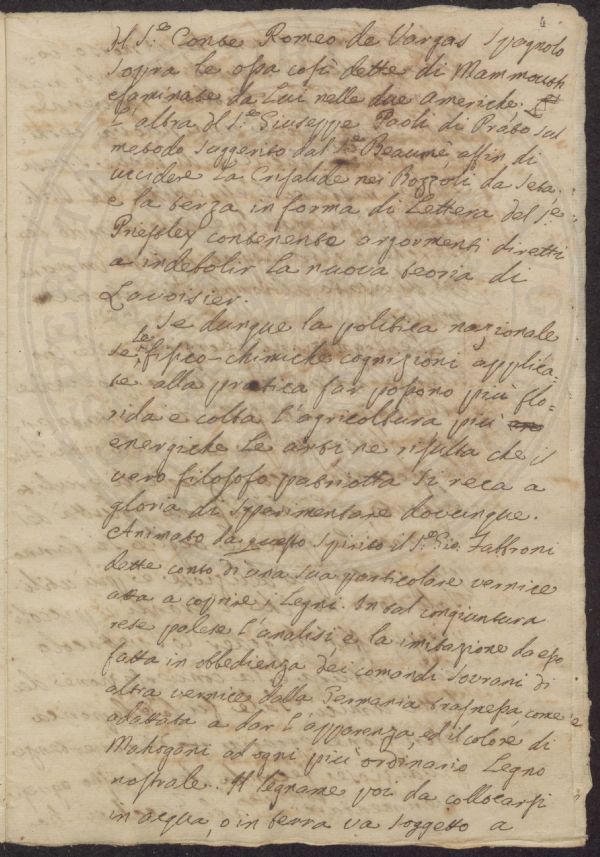 4
Il S.re Conte Romeo de Vargas Spagnolo
sopra le ossa così dette di Mammouth
esaminate da Lui nelle due Americhe.
L'altra Il S.re Giuseppe Paoli di Prato sul
metodo suggerito dal S.re Beaumè affin di
uccidere la Crisalide nei Bozzoli da Seta.
e la terza in forma di Lettera del S.re
Priestley contenente argormenti diretti
a indebolir la nuova teoria di
Lavoisier.
Se dunque la politica nazionale
se le fisico-chimiche cognizioni applica-
te alla pratica far possono più flo-
rida e colta l'agricoltura più
energiche le arti ne risulta che il
vero filosofo patriotta si reca a
gloria di sperimentare dovunque.
Animato da questo spirito il S.re Gio. Fabbroni
dette conto di una sua particolare vernice
atta a coprire i Legni. In tal congiuntura
rese palese l'analisi e la imitazione da esso
fatta in obbedienza dei comandi Sovrani di
altra vernice dalla Germania trasmessa come è
adattata a dar l'apparenza ed il colore di
Mahogani ad ogni più ordinario Legno
nostrale. Il legname poi da collocarsi
in acqua, o in terra va soggetto a